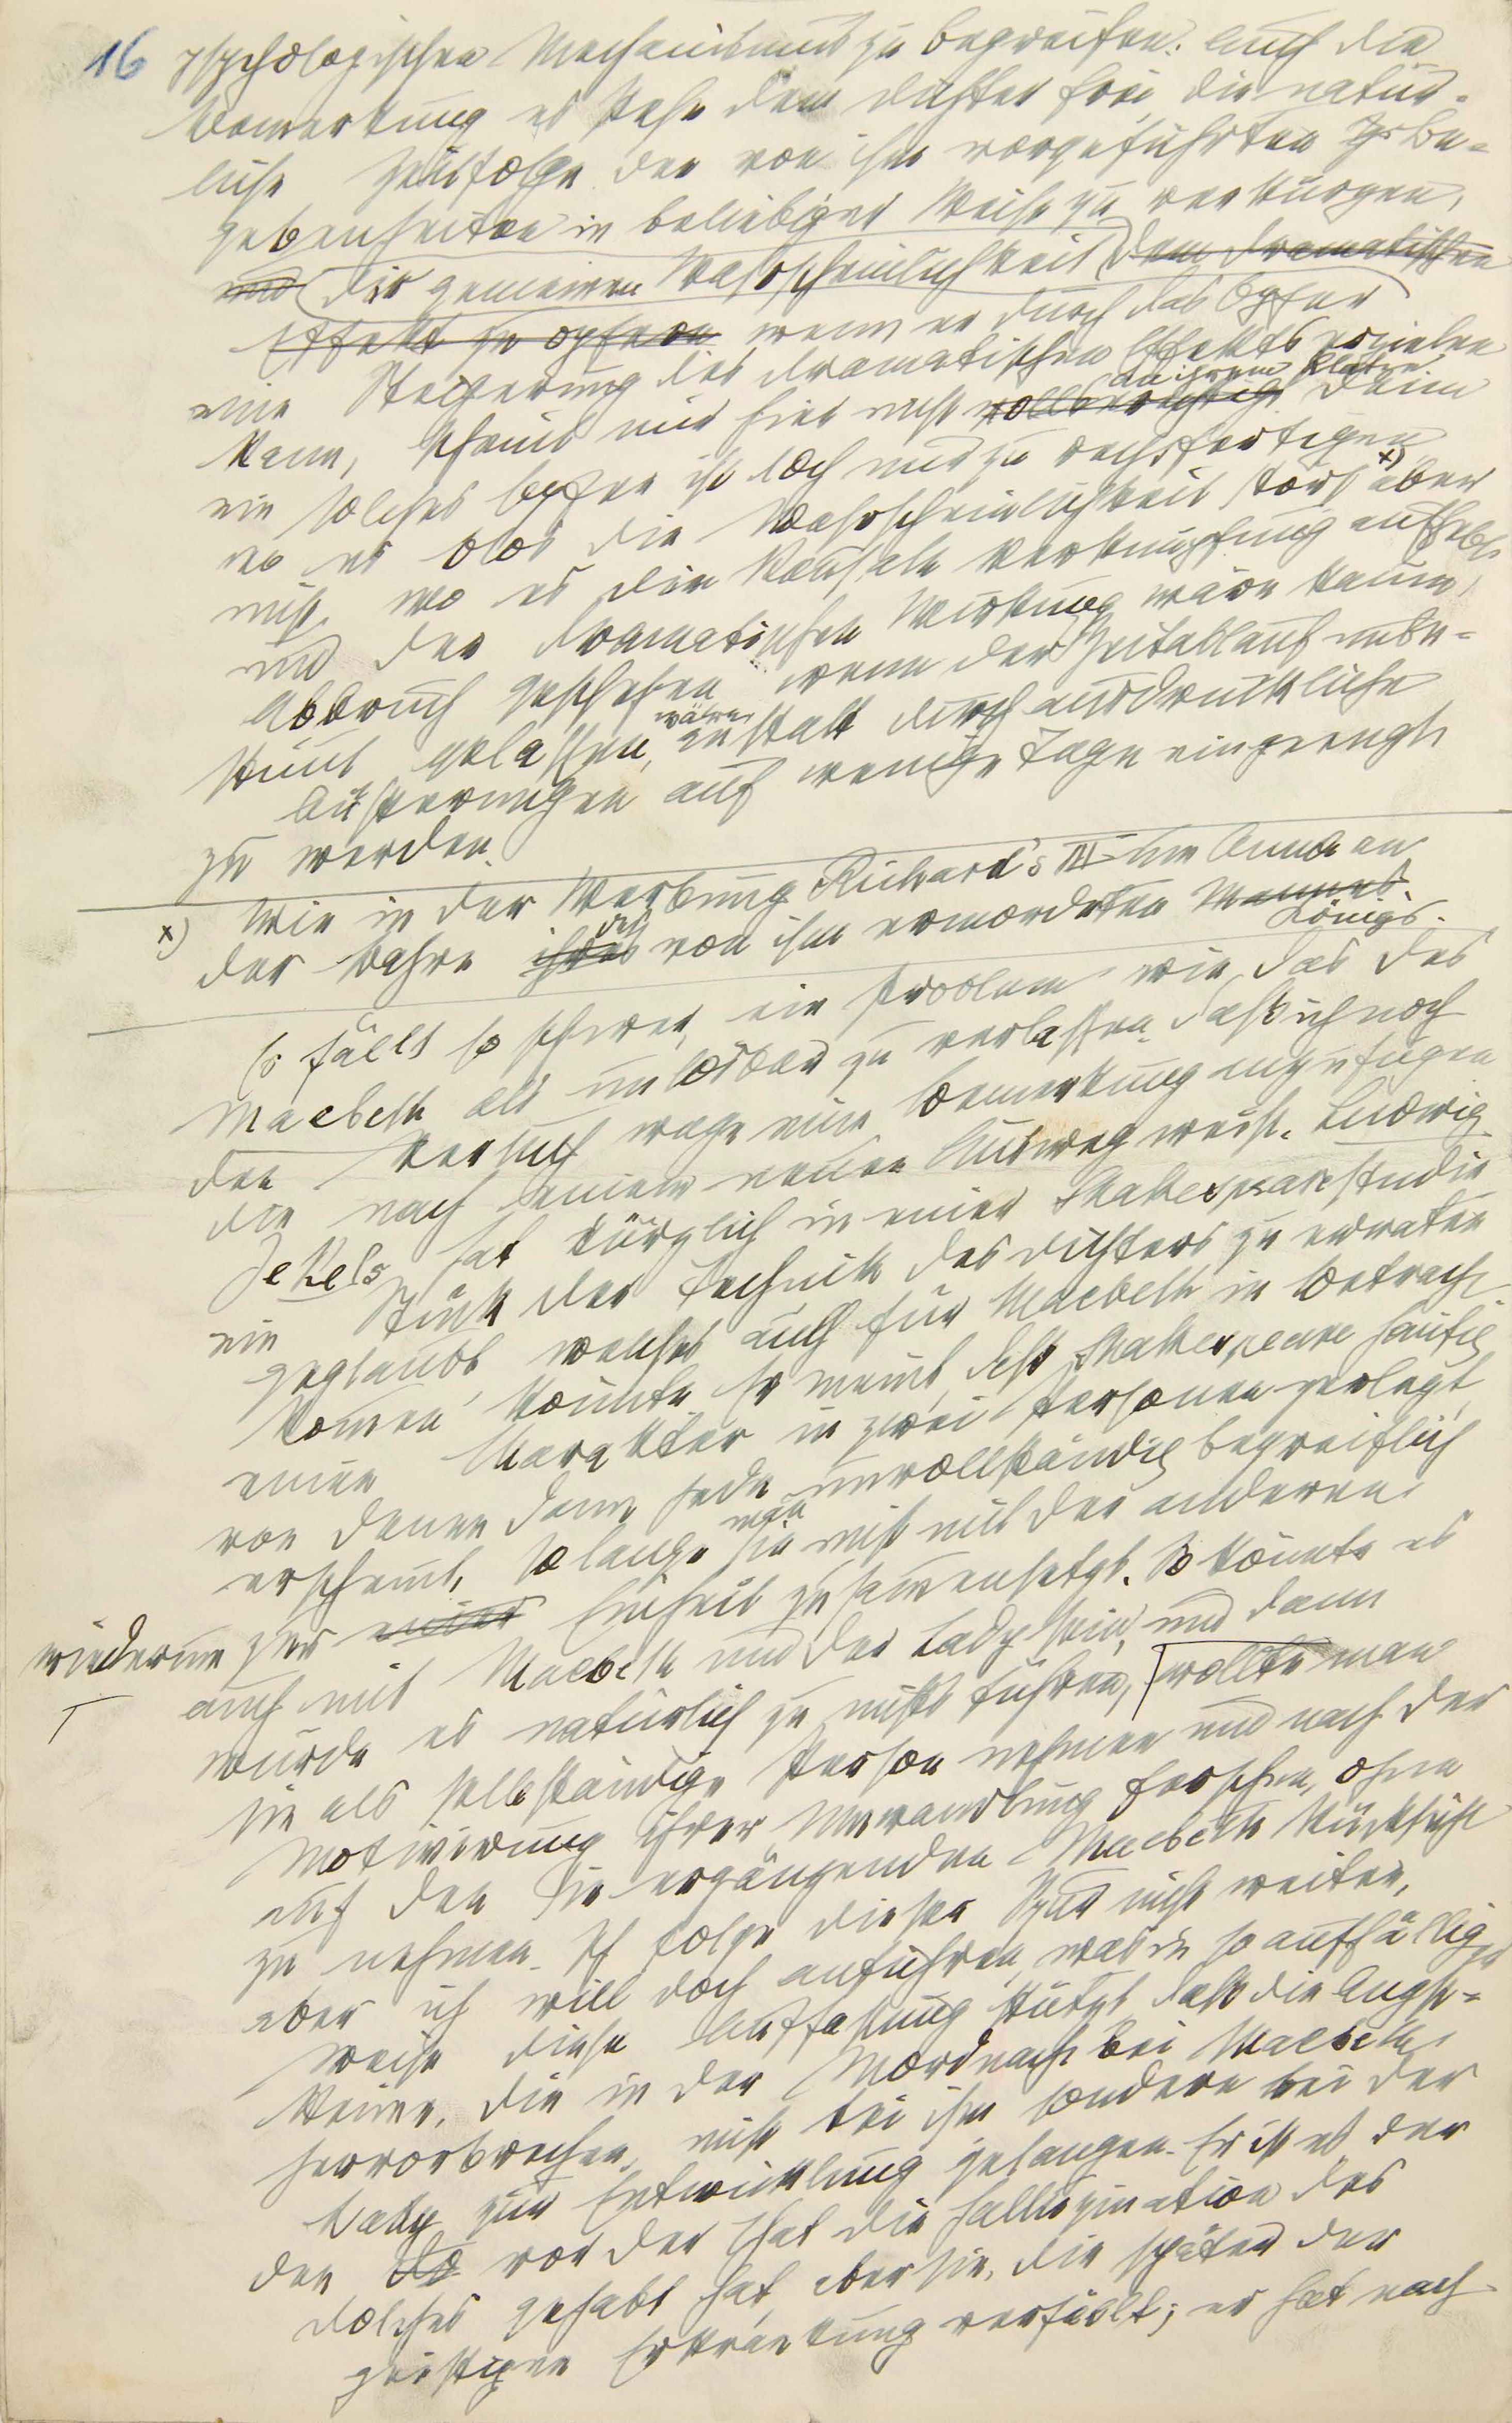 16 psychologischen Mechanismus zu begreifen. Auch die
Bemerkung es stehe dem Dichter frei die natür-
liche Zeitfolge der von ihm vorgeführten Be-
gebenheiten in beliebiger Weise zu verkürzen,
und der gemeinen Wahrscheinlichkeit dem dramatischen
Effekt zu opfern wenn er durch das Opfer
eine Steigerung des dramatischen Effekts erzielen
kann, scheint mir hier nicht vollberechtigt an ihrem Platze. Denn
ein solches Opfer ist doch nur zu rechtfertigen
wo es blos die Wahrscheinlichkeit stört x) aber
nicht, wo es die kausale Verknüpfung aufhebt
und der dramatischen Wirkung wäre kaum
Abbruch geschehen wenn der Zeitablauf unbe-
stimmt gelassen wäre, anstatt durch ausdrückliche
Äußerungen auf wenige Tage eingeengt
zu werden.
x) Wie in der Werbung Richard's III um Anna an
der Bahre ihres des von ihm ermordeten Mannes. Königs.
Es fällt so schwer, ein Problem wie das des
Macbeth als unlösbar zu verlassen, daß ich noch
den Versuch wage eine Bemerkung anzufügen
die nach einem neuen Ausweg weist. Ludwig
Jekels hat kürzlich in einer Shakespearestudie
ein Stück der Technik des Dichters zu erraten
geglaubt welches auch für Macbeth in Betracht
kommen könnte. Er meint, daß Shakespeare häufig
einen Charakter in zwei Personen zerlegt,
von denen dann jede unvollständig begreiflich
erscheint, solange man sie nicht mit der anderen
wiederum zur einer Einheit zusammensetzt. So könnte es
auch mit Macbeth und der Lady sein, und dann
würde es natürlich zu nichts führen, wollte man
sie als selbständige Person nehmen und nach der
Motivierung ihrer Umwandlung forschen, ohne
auf den sie ergänzenden Macbeth Rücksicht
zu nehmen. Ich folge dieser Spur nicht weiter,
aber ich will doch anführen, was in so auffälliger
Weise diese Auffassung stützt, daß die Angst-
keime, die in der Mordnacht bei Macbeth
hervorbrechen, nicht bei ihm sondern bei der
Lady zur Entwicklung gelangen. Er ist es, der
den vor der That die Halluzination des
Dolches gehabt hat, aber sie, die später der
geistigen Erkrankung verfällt; er hat nach